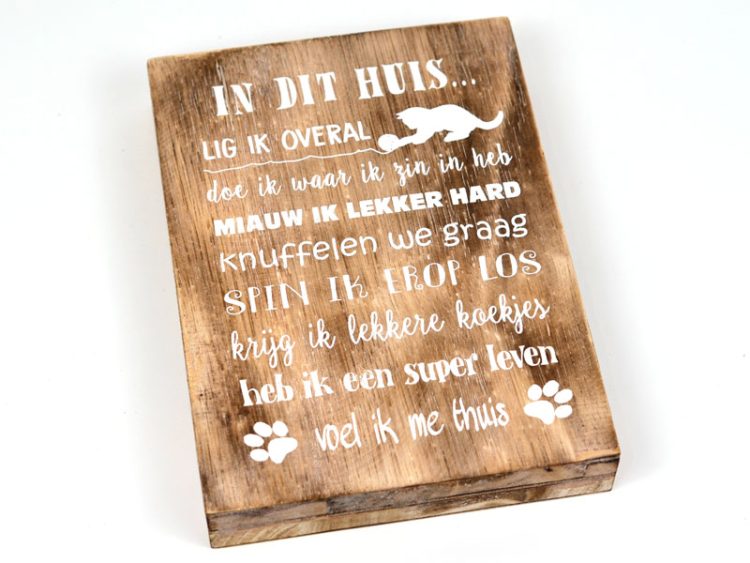 IN DIT HUIS...
LIG IK OVERAL
doe ik waar ik zin in heb
MIAUW IK LEKKER HARD
knuffelen we graag
SPIN IK EROP LOS
krijg ik lekkere koekjes
heb ik een super leven
voel ik me thuis